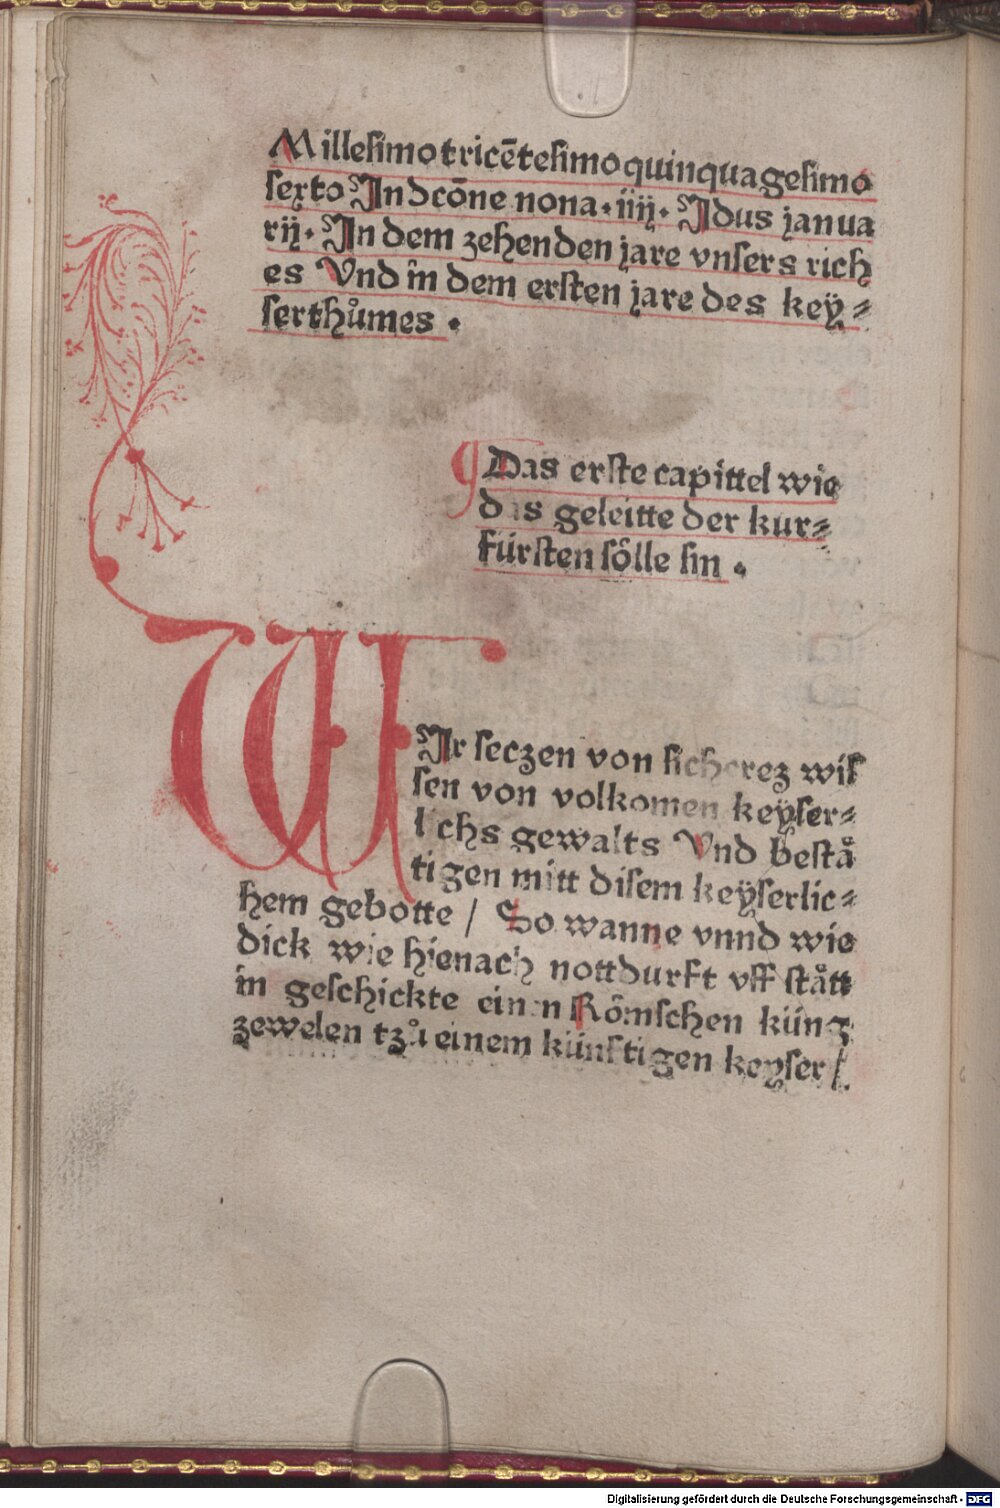 Millesimo tricētesimo quinquagesimo
sexto Jn dcōne nona · iiij · Jdus janua
rij · Jn dem zehenden jare vnsers rich
es Vnd in dem ersten jare des key⸗
serthůmes ·
Das erste capittel wie
das geleitte der kur⸗
fürsten sölle sin ·
WJr seczen von sicherez wis
sen von volkomen keyser⸗
lichs gewalts Vnd bestå
tigen mitt disem keyserlic⸗
hem gebotte / So wanne vnnd wie
dick wie hienach nottdurft vff stått
in geschickte einen Römschen küng
zewelen tzů einem künftigen keyser /
Digitalisierung gefördert durch die Deutsche Forschungsgemeinschaft - DFG